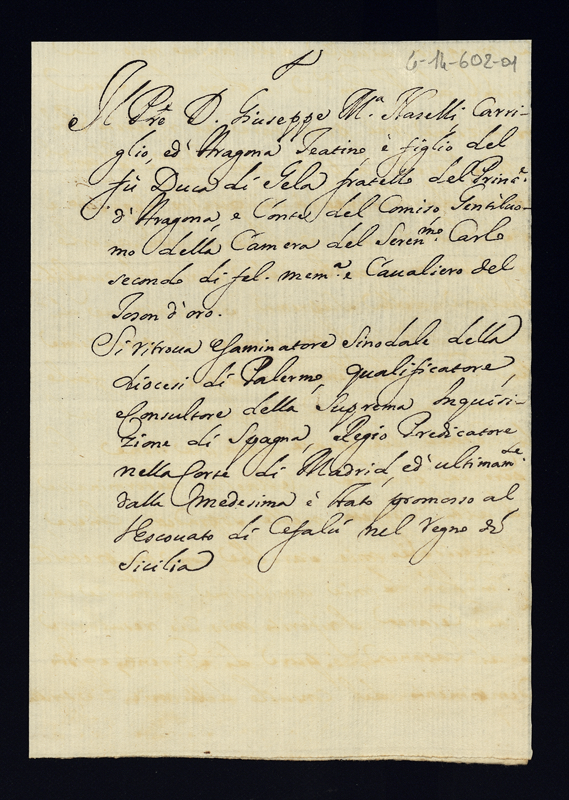 6-14-602-01
Il Pre D. Giuseppe Ma. Naselli Carri-
glio, ed' Aragona Teatino, è figlio del
fù Duca di Gela fratello del Princ.e
d'Aragona, e Conte del Comiso, Gentiluo-
mo della Camera del Seren.mo Carlo
secondo di fel. mem.a e Caualiero del
Toson d'oro.
Si ritroua Esaminatore Sinodale della
diocesi di Palermo, qualificatore,
e Consultore della Suprema Inquisi-
zione di Spagna, e Regio Predicatore
nella Corte di Madrid, ed' ultimam.te
dalla Medesima è stato promosso al
Vescouato di Cefalù nel Regno di
Sicilia